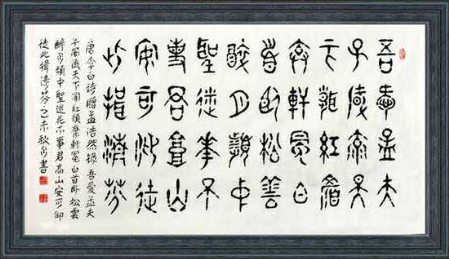 吾愛孟夫
子風流天
下聞紅顏
棄軒冕白
首臥松雲
醉月頻中
聖迷花不
事君高山
安可仰徒
此揖清芬
唐李白詩贈孟浩然 吾愛孟夫
子風流天下聞紅顏棄軒冕白首臥松雲
醉月頻中聖迷花不事君高山安可仰
徒此揖清芬 乙未秋書